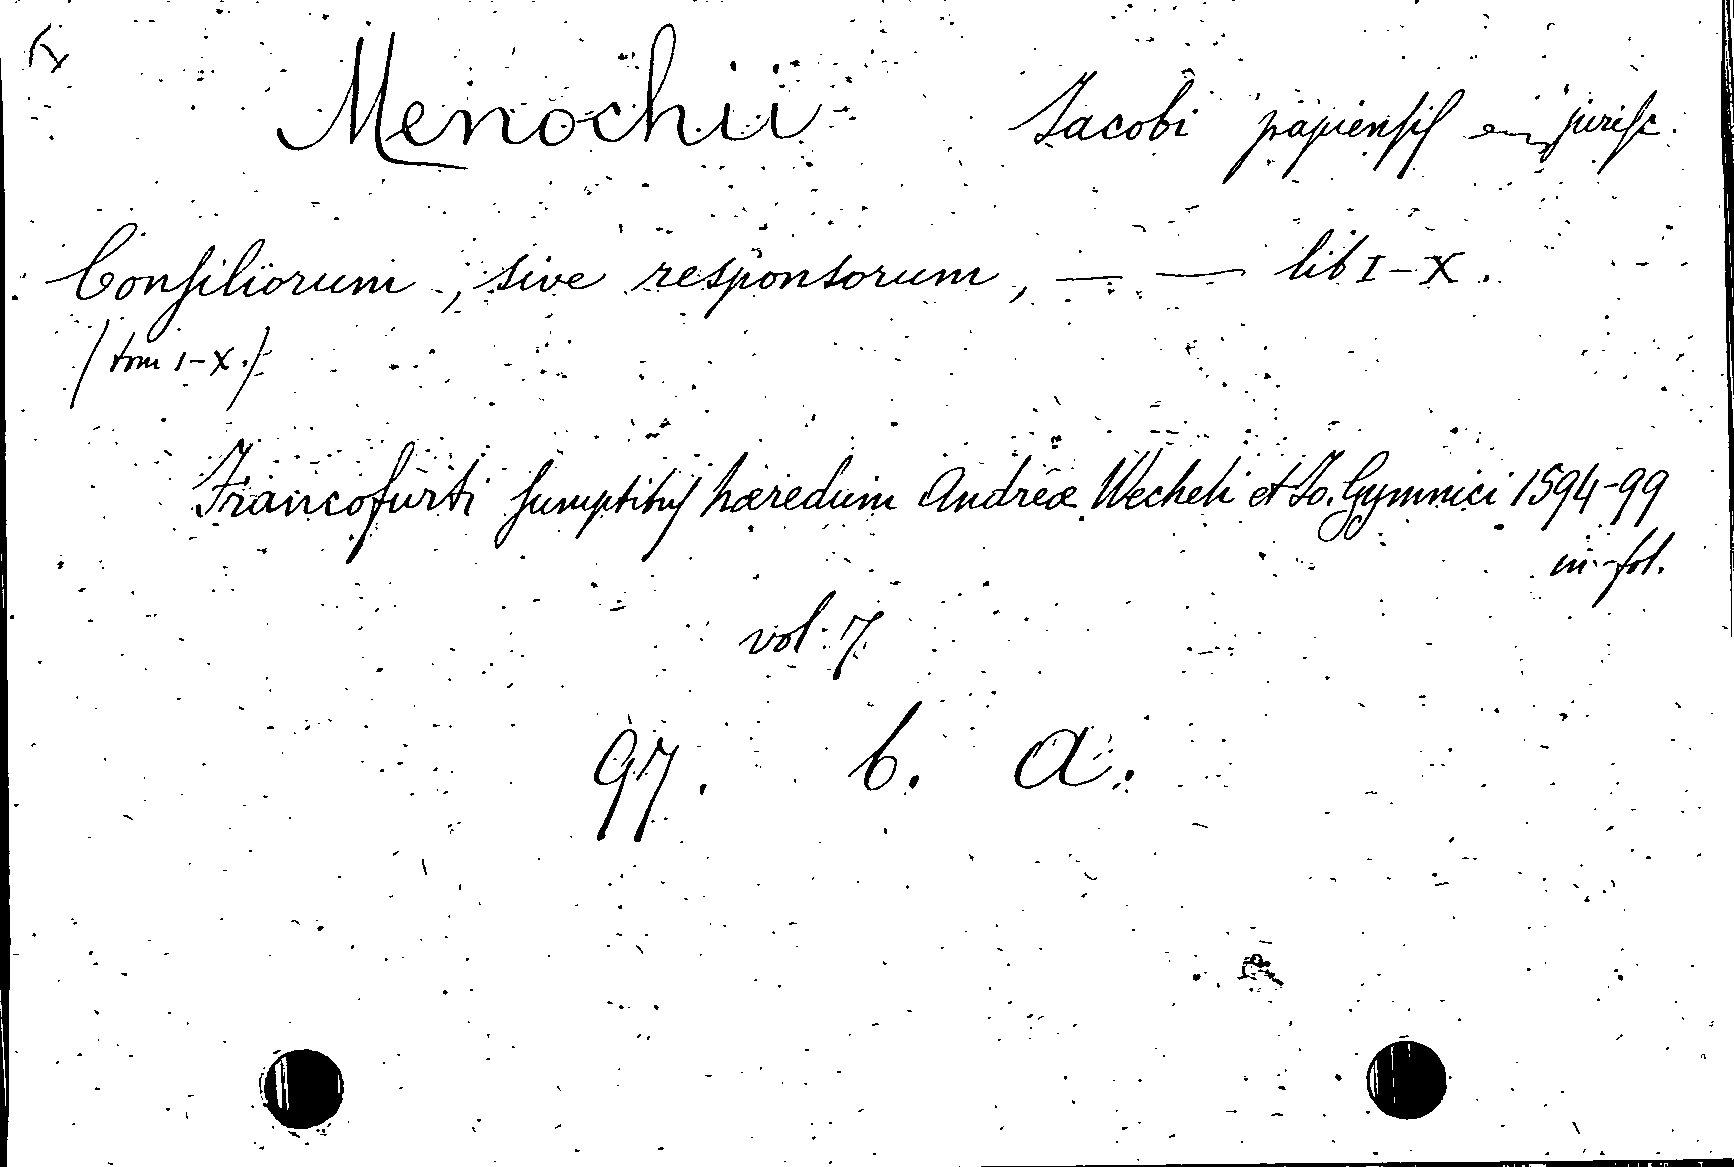 Menochii Jacobi papiensis jurisc.
Consiliorum, sive responsorum, — — lib I-X.
(tom I-X.)
Francofurti sumptibus hæredum Andreæ Wecheli et Jo. Gymnici 1594-99
in-fol.
vol. 7.
97. b. a.